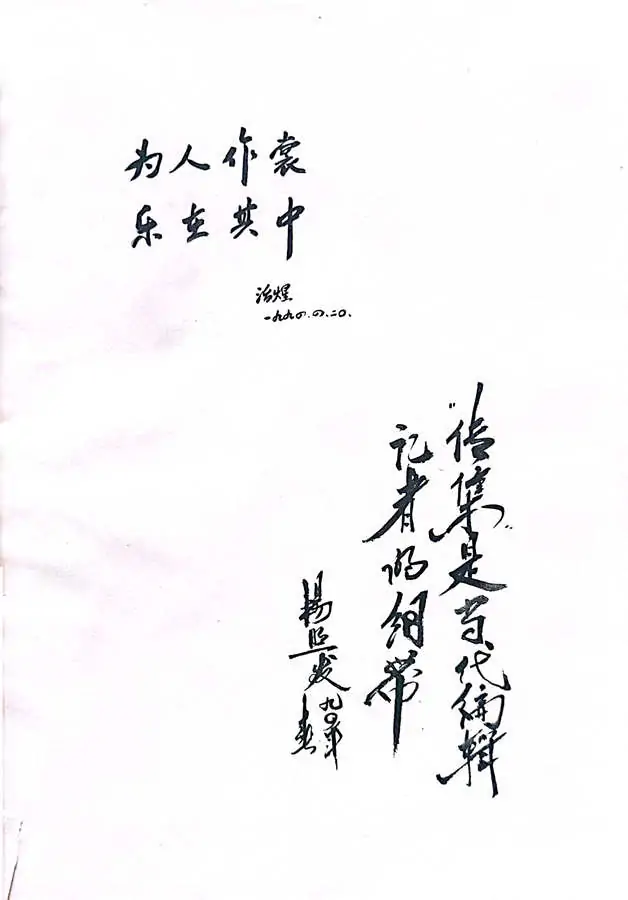 为人作裳
乐在其中
一九九〇.四.二〇.
"传集"是当代编辑
记者的纽带
九〇年春